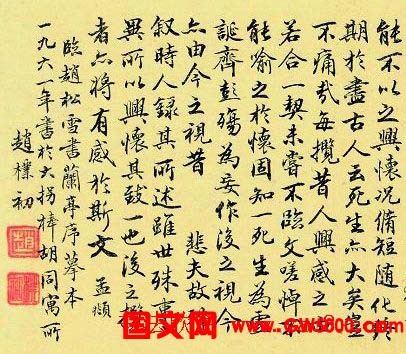 能不以之興懷況脩短随化終
期於盡古人云死生亦大矣豈
不痛哉每攬昔人興感之
若合一契未嘗不臨文嗟悼不
能喻之於懷固知一死生為虛
誕齊彭殤為妄作後之視今
亦由今之視昔 悲夫故
叙時人録其所述雖世殊事
異所以興懷其致一也後之攬
者亦將有感於斯文 孟頫
臨趙松雪書蘭亭序摹本
一九六一年書於大拐棒胡同寓所
趙樸初
国文网
www.GW3600.com